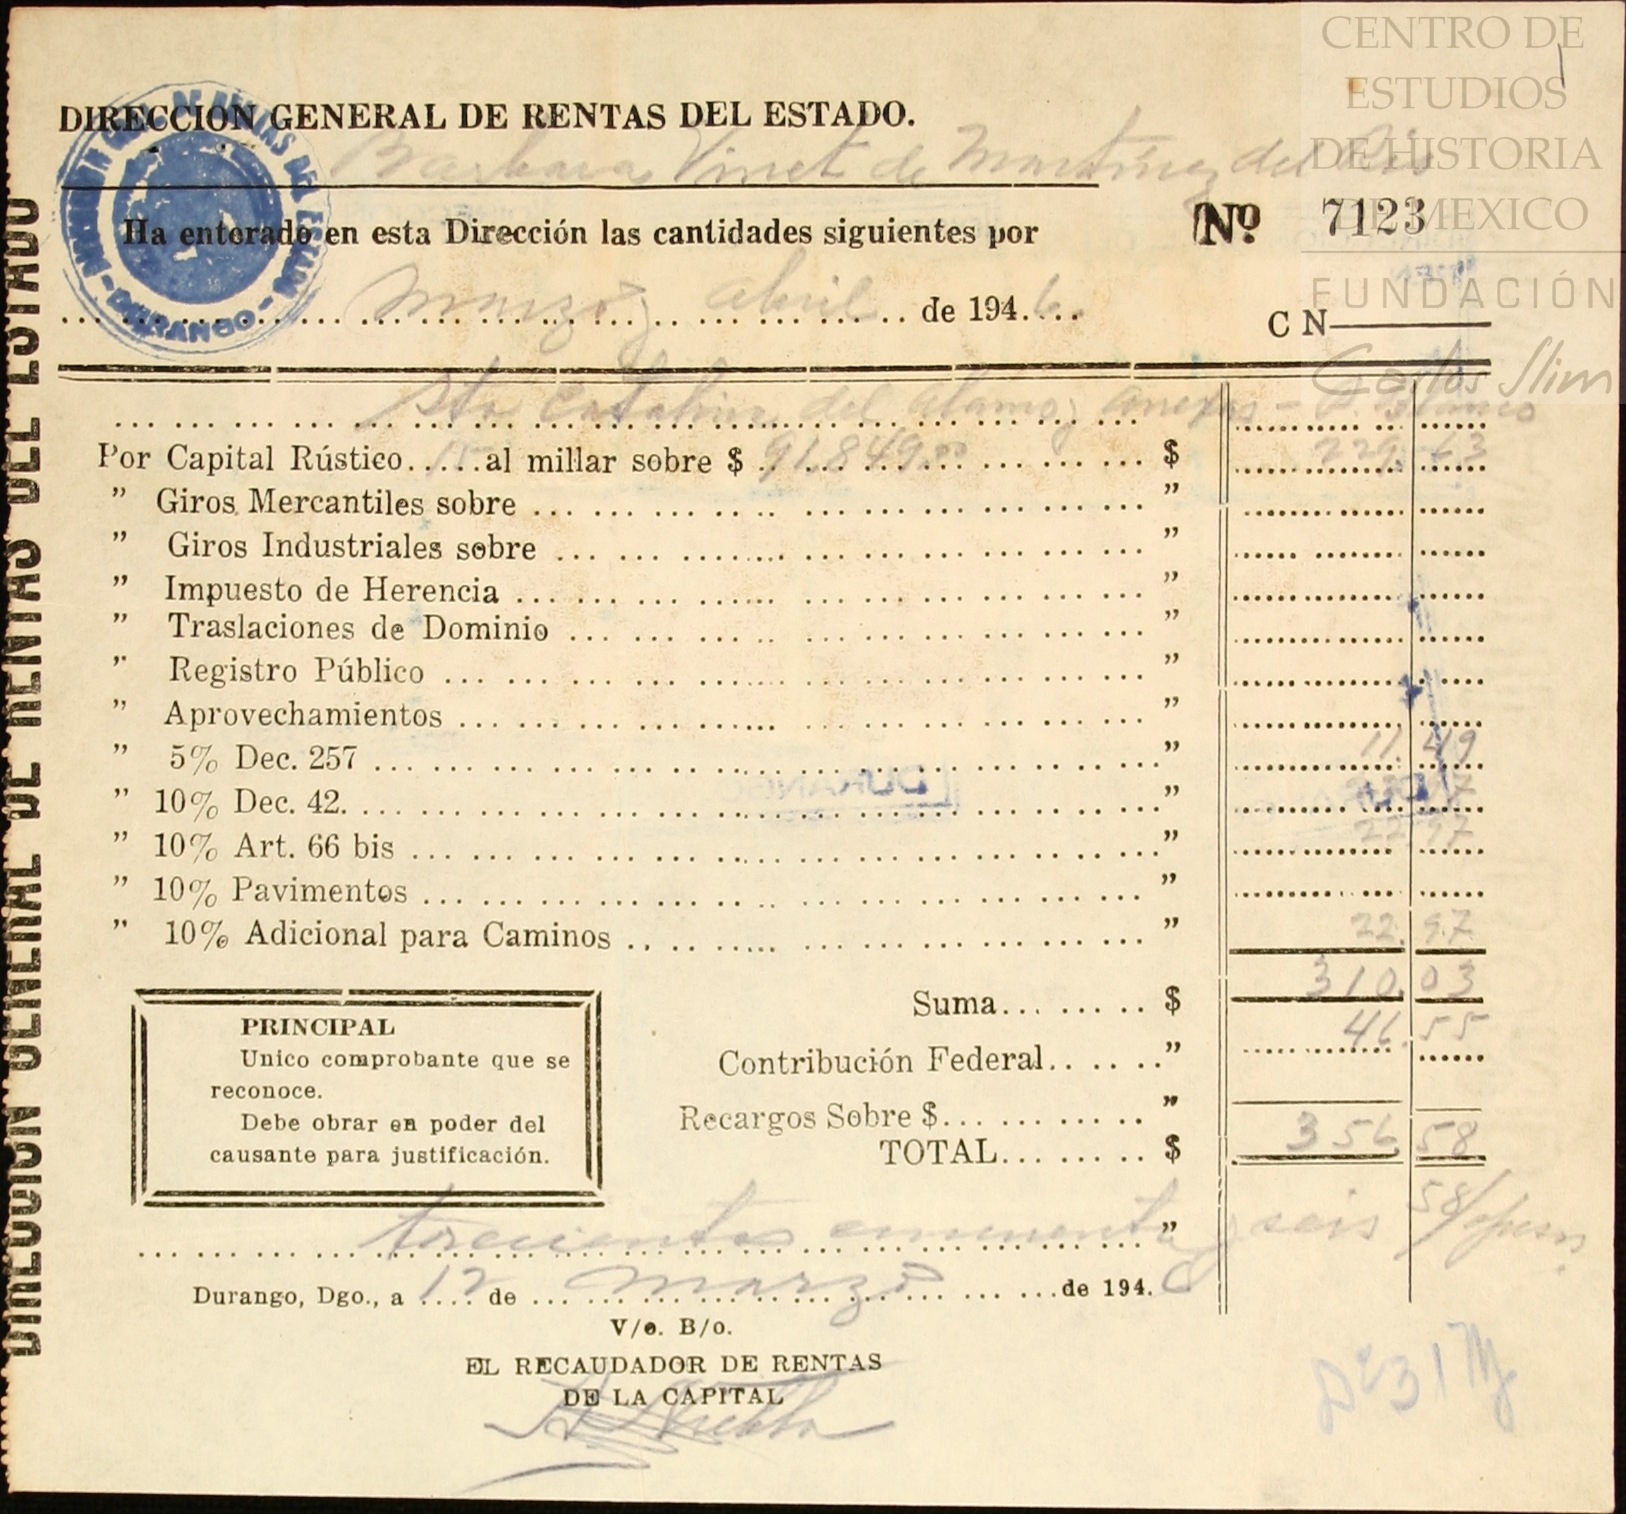 CENTRO DE
ESTUDIOS
DE HISTORIA
DE MEXICO
FUNDACIÓN
Carlos Slim
DIRECCION GENERAL DE RENTAS DEL ESTADO.
Barbara Vinet de Martínez del Río
Ha enterado en esta Dirección las cantidades siguientes por
Nº 7123
marzo y abril de 1946.
C N
Sta Catalina del Alamo y anexas -
Por Capital Rústico al millar sobre $ 91.849.00 $ 229.63
" Giros Mercantiles sobre "
" Giros Industriales sobre "
" Impuesto de Herencia "
" Traslaciones de Dominio "
" Registro Público "
" Aprovechamientos "
" 5% Dec. 257 " 11.49
" 10% Dec. 42. "
" 10% Art. 66 bis " 22.97
" 10% Pavimentos "
" 10% Adicional para Caminos " 22.97
310.03
Suma $
46.55
Contribución Federal "
Recargos Sobre $ "
TOTAL $ 356.58
PRINCIPAL
Unico comprobante que se
reconoce.
Debe obrar en poder del
causante para justificación.
trecientos cincuenta y seis 58/
Durango, Dgo., a 12 de marzo de 1946
V/o. B/o.
EL RECAUDADOR DE RENTAS
DE LA CAPITAL
DIRECCION GENERAL DE RENTAS DEL ESTADO
DURANGO